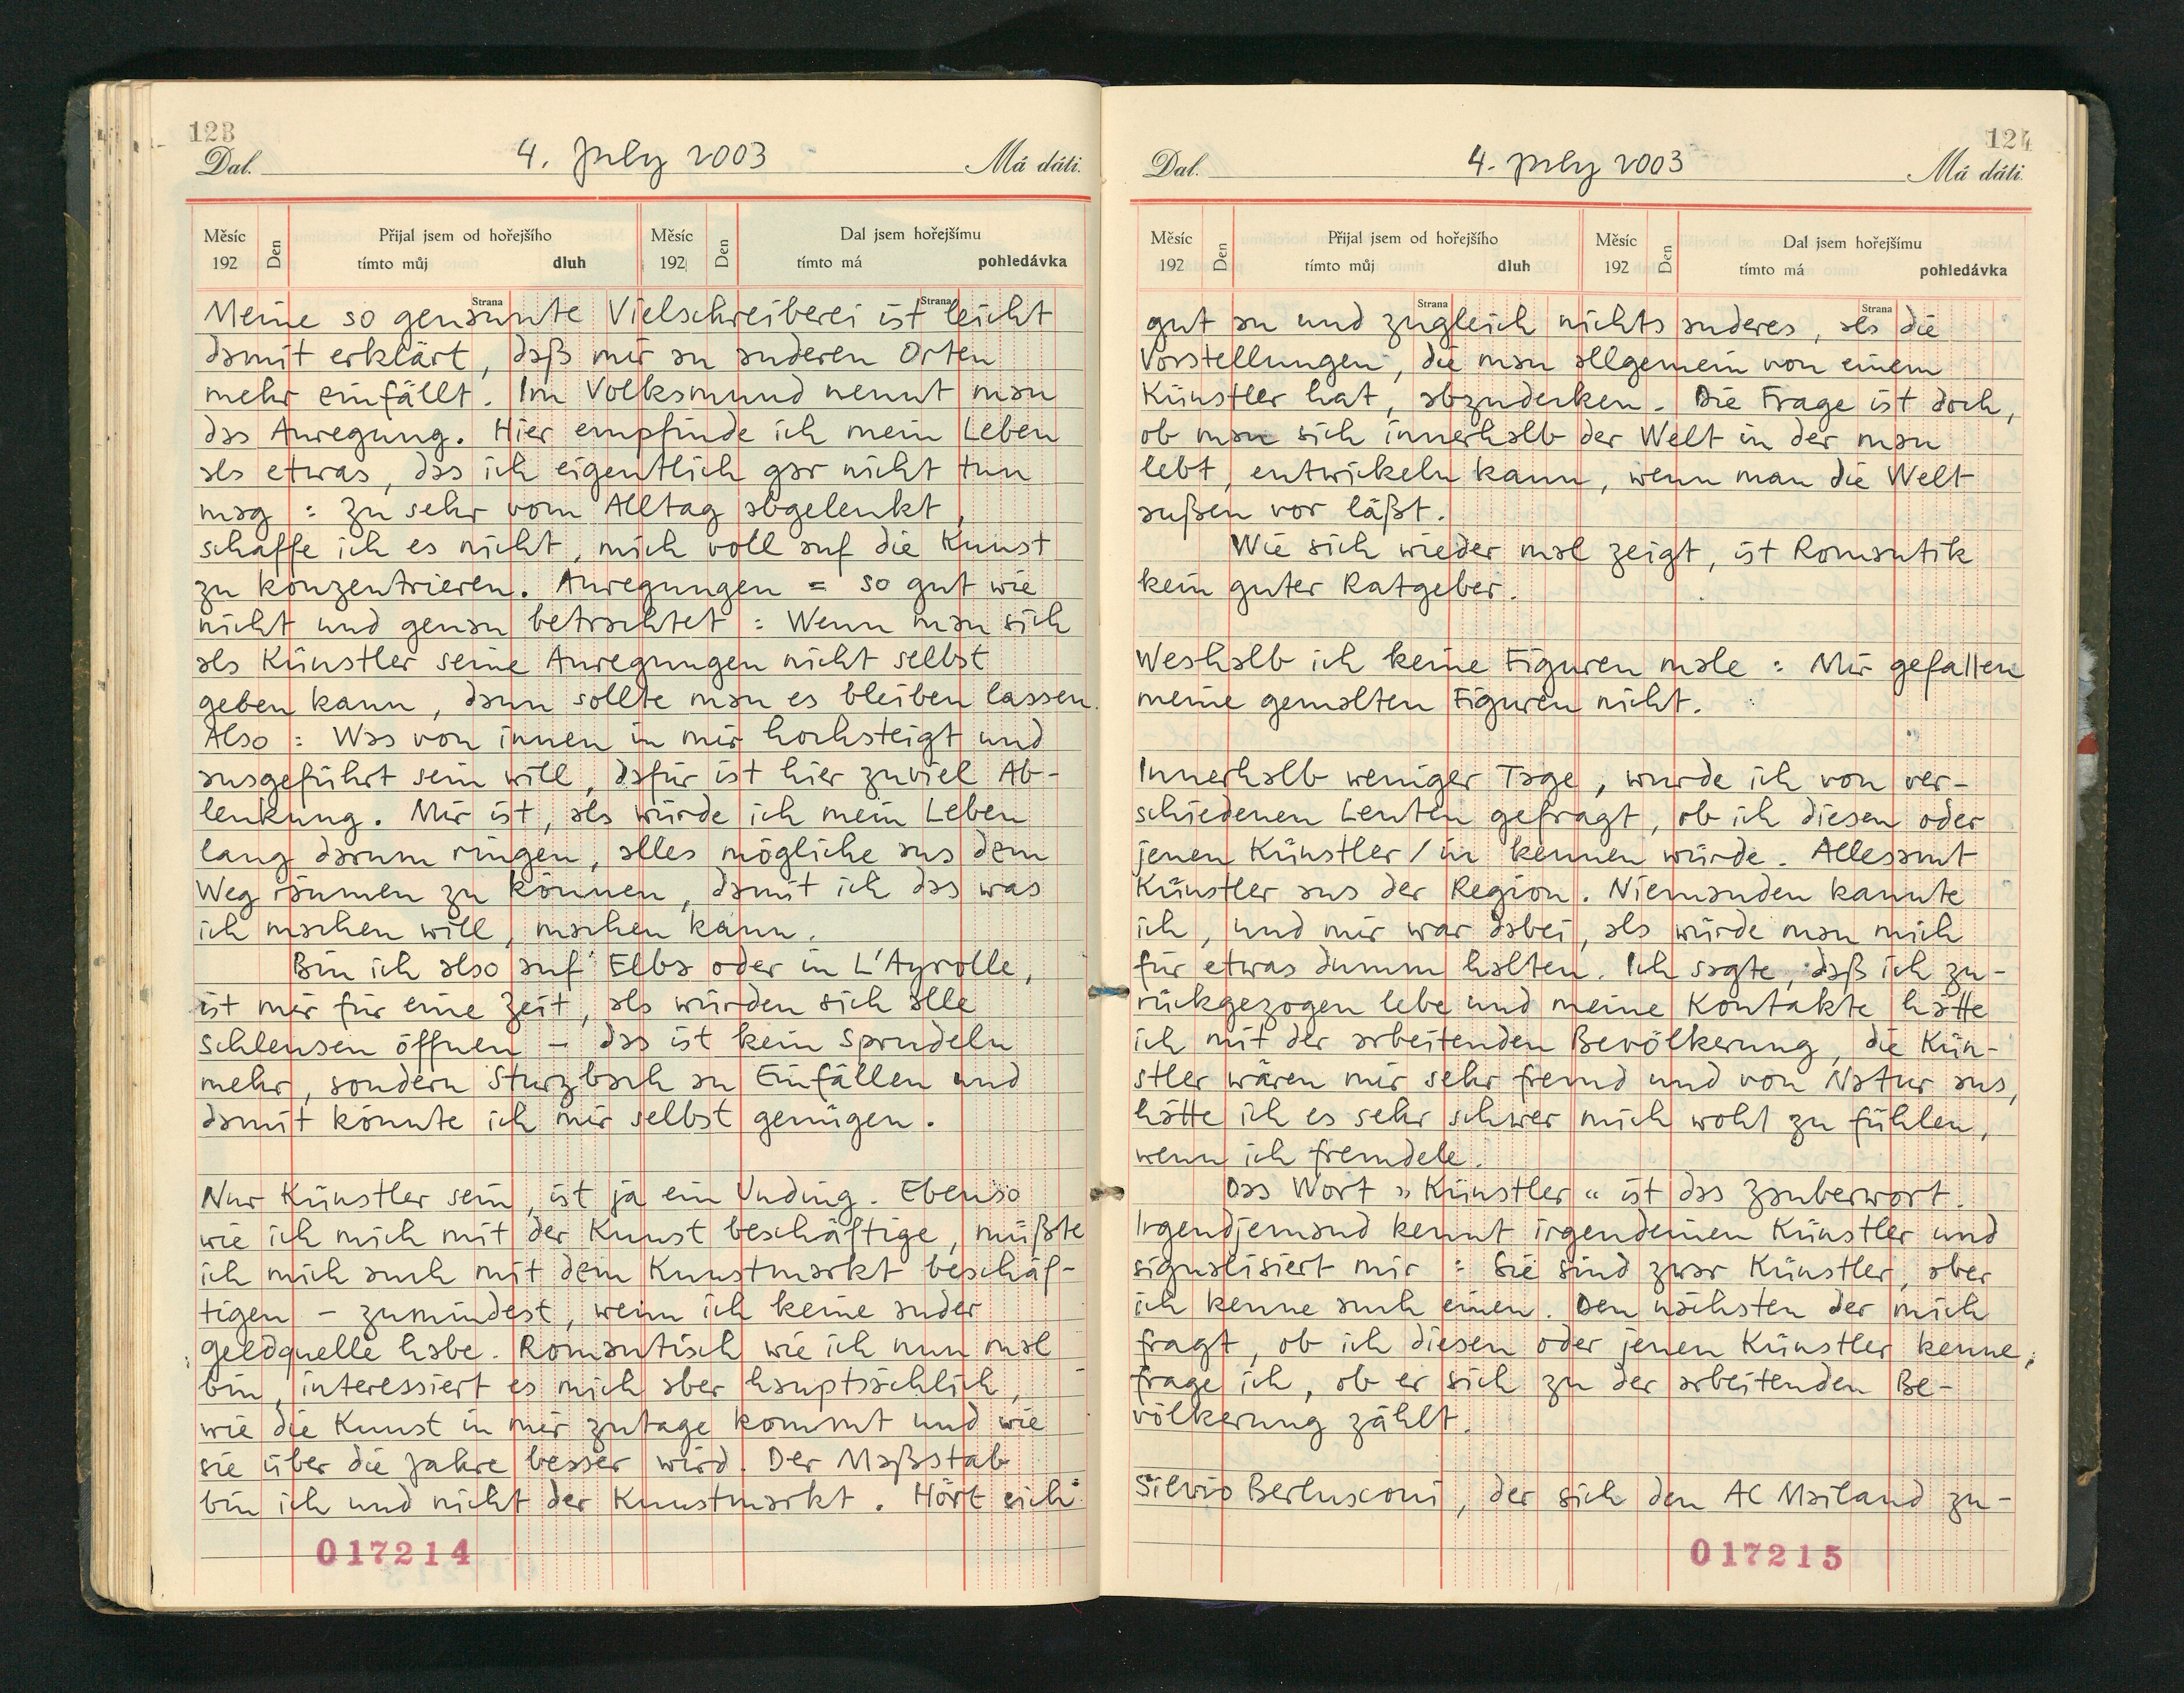 123
Dal. 4. July 2003 Má dáti.
Měsíc 192 Den Přijal jsem od hořejšího tímto můj dluh Měsíc 192 Den Dal jsem hořejšímu tímto má pohledávka
Strana Strana
Meine so genannte Vielschreiberei ist leicht
damit erklärt, daß mir an anderen Orten
mehr einfällt. Im Volksmund nennt man
das Anregung. Hier empfinde ich mein Leben
als etwas, das ich eigentlich gar nicht tun
mag : zu sehr vom Alltag abgelenkt,
schaffe ich es nicht, mich voll auf die Kunst
zu konzentrieren. Anregungen = so gut wie
nicht und genau betrachtet : Wenn man sich
als Künstler seine Anregungen nicht selbst
geben kann, dann sollte man es bleiben lassen.
Also : Was von innen in mir hochsteigt und
ausgeführt sein will, dafür ist hier zuviel Ab-
lenkung. Mir ist, als würde ich mein Leben
lang darum ringen, alles mögliche aus dem
Weg räumen zu können, damit ich das was
ich machen will, machen kann.
Bin ich also auf Elba oder in L'Ayrolle,
ist mir für eine Zeit, als würden sich alle
Schleusen öffnen – das ist kein Sprudeln
mehr, sondern Sturzbach an Einfällen und
damit könnte ich mir selbst genügen.
Nur Künstler sein, ist ja ein Unding. Ebenso
wie ich mich mit der Kunst beschäftige, müßte
ich mich auch mit dem Kunstmarkt beschäf-
tigen – zumindest, wenn ich keine ander
Geldquelle habe. Romantisch wie ich nun mal
bin, interessiert es mich aber hauptsächlich,
wie die Kunst in mir zutage kommt und wie
sie über die Jahre besser wird. Der Maßstab
bin ich und nicht der Kunstmarkt. Hört sich
017214
124
Dal. 4. July 2003 Má dáti.
Měsíc 192 Den Přijal jsem od hořejšího tímto můj dluh Měsíc 192 Den Dal jsem hořejšímu tímto má pohledávka
Strana Strana
gut an und zugleich nichts anderes, als die
Vorstellungen, die man allgemein von einem
Künstler hat, abzudecken. Die Frage ist doch,
ob man sich innerhalb der Welt in der man
lebt, entwickeln kann, wenn man die Welt
außen vor läßt.
Wie sich wieder mal zeigt, ist Romantik
kein guter Ratgeber.
Weshalb ich keine Figuren male : Mir gefallen
meine gemalten Figuren nicht.
Innerhalb weniger Tage, wurde ich von ver-
schiedenen Leuten gefragt, ob ich diesen oder
jenen Künstler/in kennen würde. Allesamt
Künstler aus der Region. Niemanden kannte
ich, und mir war dabei, als würde man mich
für etwas dumm halten. Ich sagte, daß ich zu-
rückgezogen lebe und meine Kontakte hätte
ich mit der arbeitenden Bevölkerung, die Kün-
stler wären mir sehr fremd und von Natur aus,
hätte ich es sehr schwer mich wohl zu fühlen,
wenn ich fremdele.
Das Wort »Künstler« ist das Zauberwort.
Irgendjemand kennt irgendeinen Künstler und
signalisiert mir : Sie sind zwar Künstler, aber
ich kenne auch einen. Den nächsten der mich
fragt, ob ich diesen oder jenen Künstler kenne,
frage ich, ob er sich zu der arbeitenden Be-
völkerung zählt.
Silvio Berlusconi, der sich den AC Mailand zu-
017215